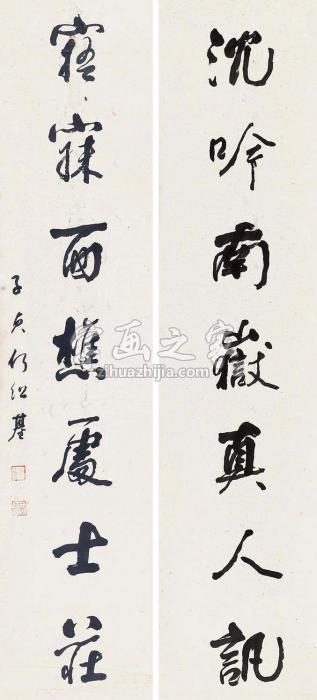 沈吟南嶽真人訊
寤寐西樵處士莊
子貞何紹基
画之家
huazhijia.com